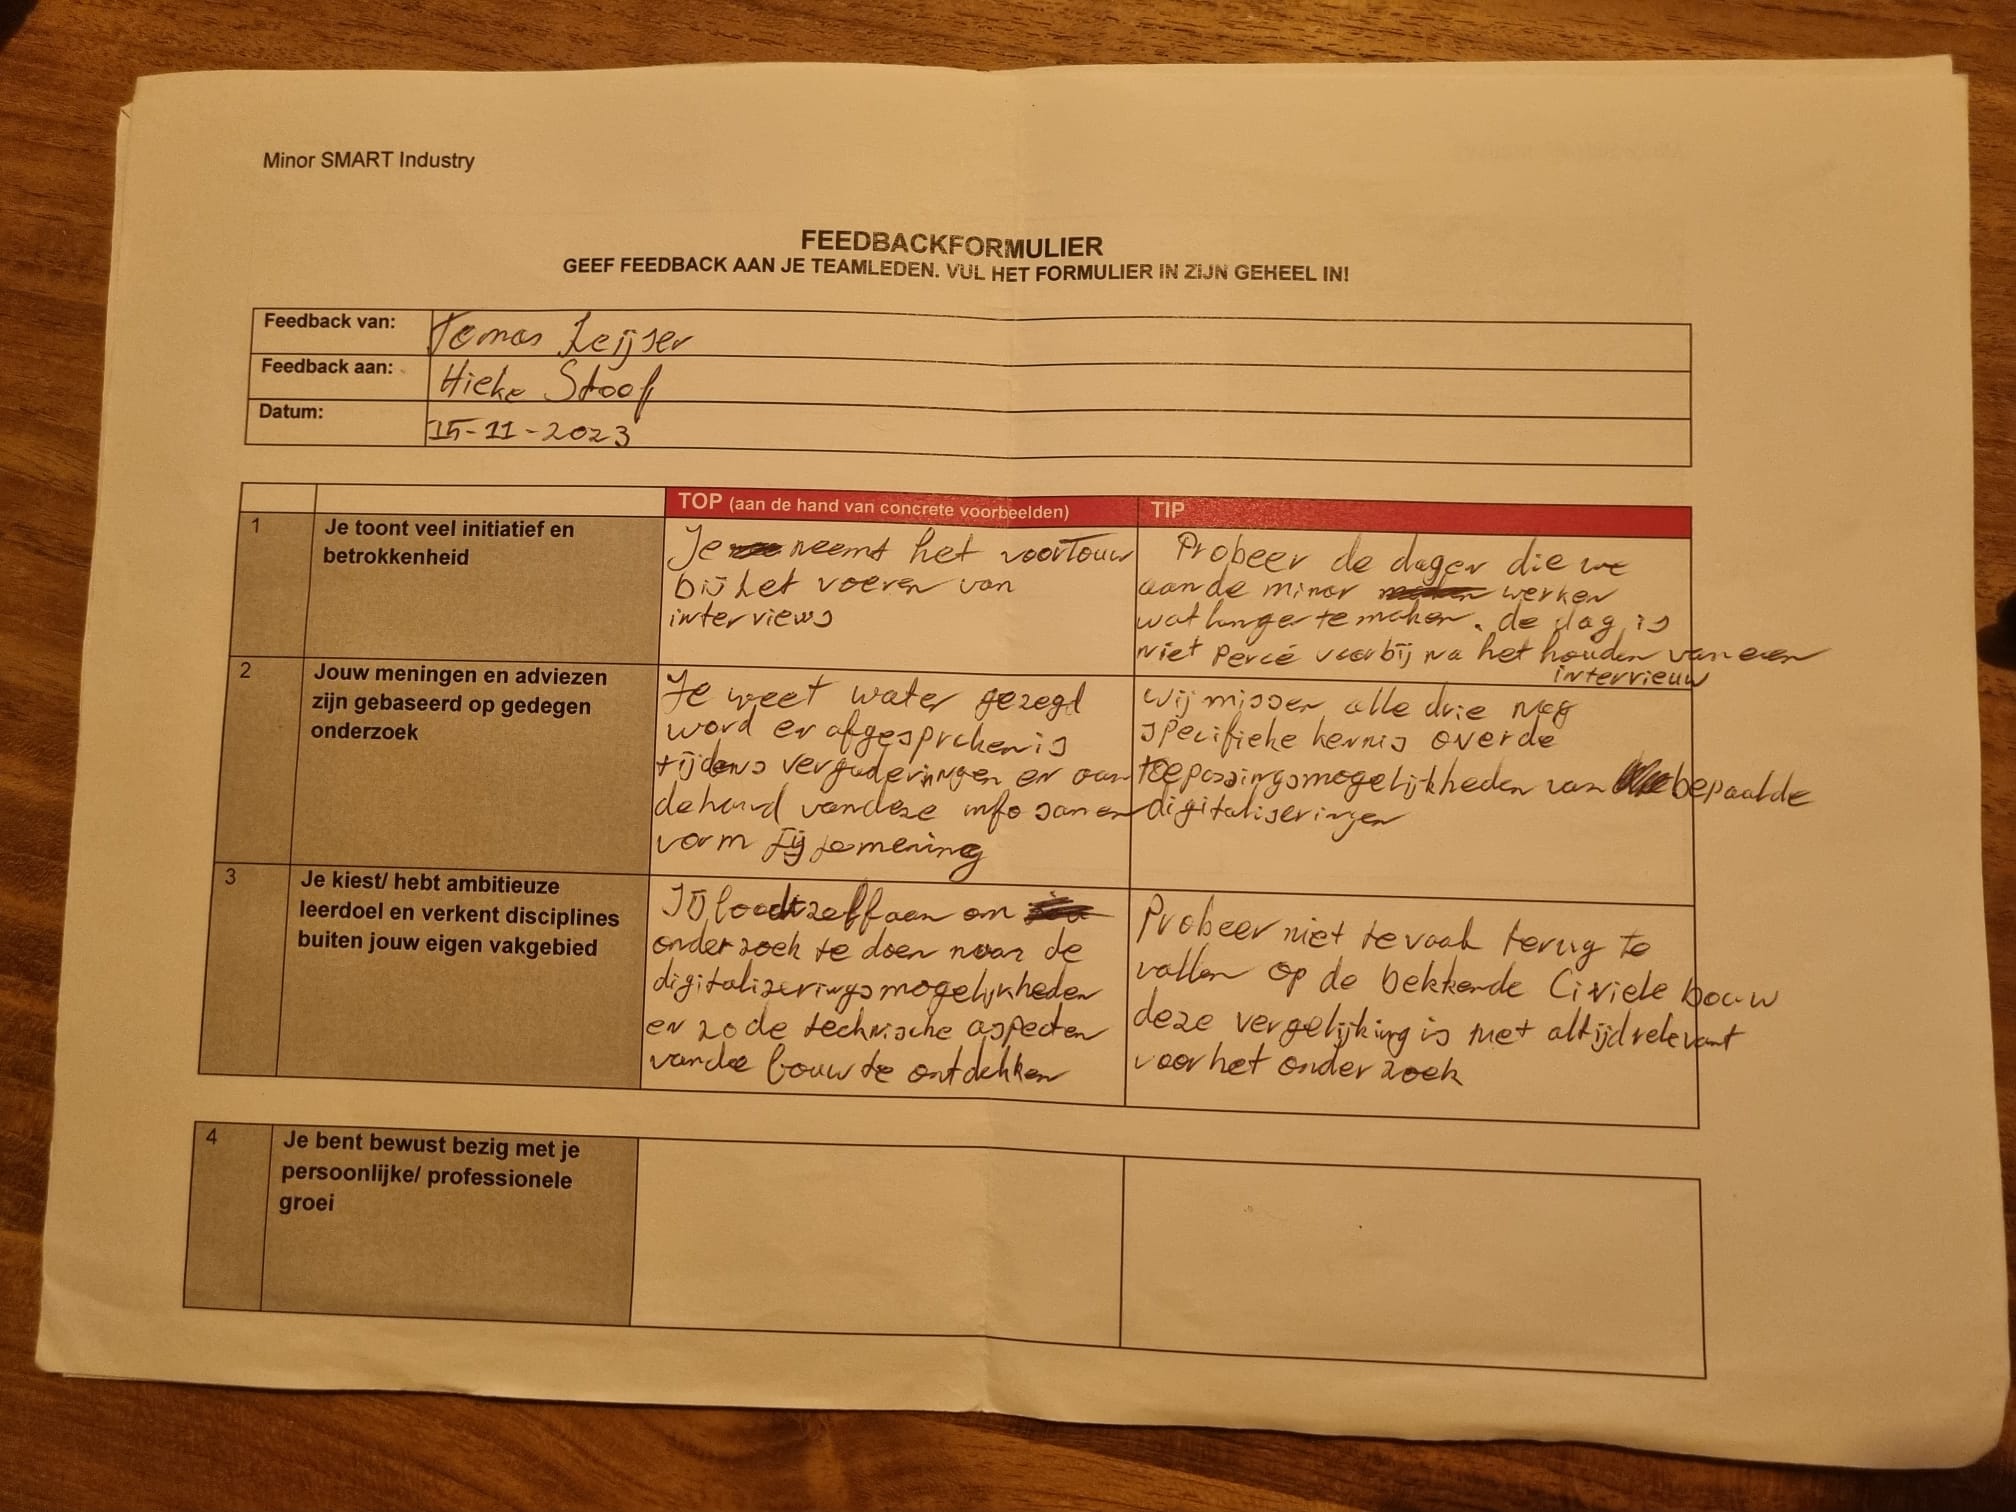 Minor SMART Industry
FEEDBACKFORMULIER
GEEF FEEDBACK AAN JE TEAMLEDEN. VUL HET FORMULIER IN ZIJN GEHEEL IN!
Feedback van: Tomas Leijser
Feedback aan: Hieke Stoof
Datum: 15-11-2023
TOP (aan de hand van concrete voorbeelden)
TIP
1
Je toont veel initiatief en
betrokkenheid
Je neemt het voortouw
bij het voeren van
interviews
Probeer de dagen die we
aan de minor werken
wat langer te maken. de dag is
niet percé voorbij na het houden van een
interview
2
Jouw meningen en adviezen
zijn gebaseerd op gedegen
onderzoek
Je weet wat er gezegd
word en afgesproken is
tijdens vergaderingen en aan
de hand van deze info samen
vorm jij je mening
wij missen alle drie nog
specifieke kennis over de
toepassingsmogelijkheden van bepaalde
digitaliseringen
3
Je kiest/ hebt ambitieuze
leerdoel en verkent disciplines
buiten jouw eigen vakgebied
Jij zelf aan om
onderzoek te doen naar de
digitaliseringsmogelijkheden
en zo de technische aspecten
van de bouw te ontdekken
Probeer niet te vaak terug te
vallen op de bekkende Civiele bouw
deze vergelijking is niet altijd relevant
voor het onderzoek
4
Je bent bewust bezig met je
persoonlijke/ professionele
groei